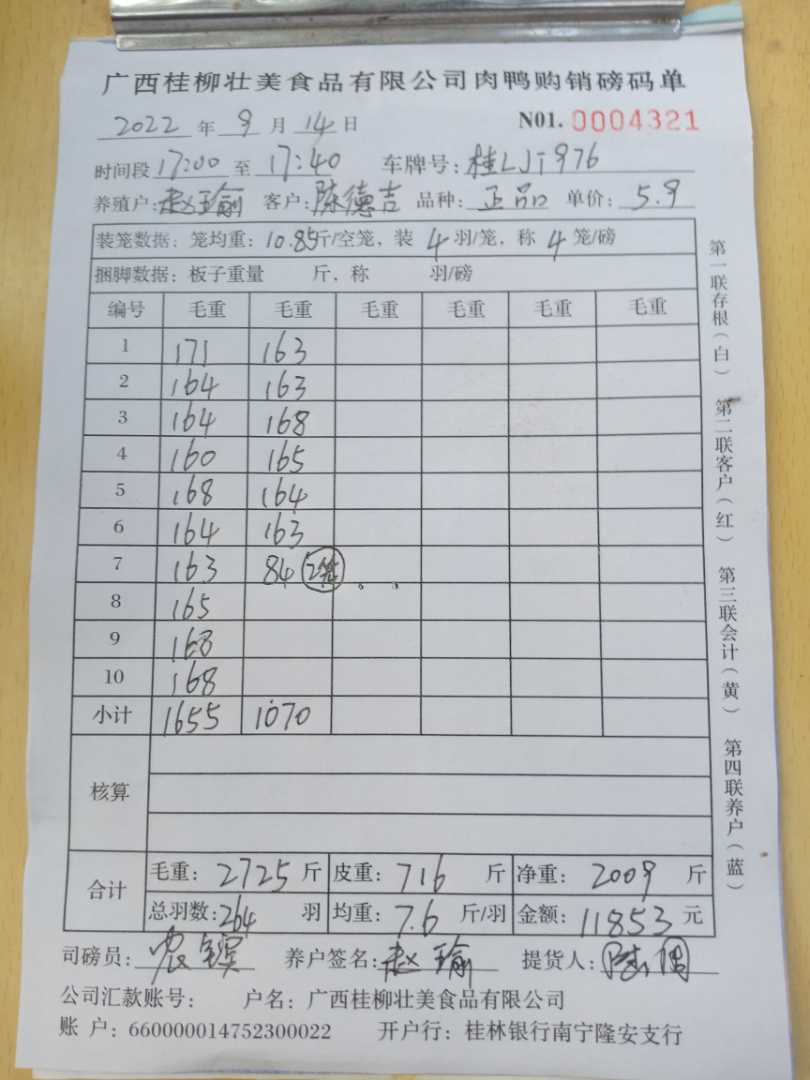 广西桂柳壮美食品有限公司肉鸭购销磅码单
2022 年 9 月 14 日 N01. 0004321
时间段 17:00 至 17:40 车牌号: 桂LJT976
养殖户: 赵瑜 客户: 陈德吉 品种: 正品 单价: 5.9
装笼数据: 笼均重: 10.85 斤/空笼, 装 4 羽/笼, 称 4 笼/磅
捆脚数据: 板子重量 斤, 称 羽/磅
编号 毛重 毛重 毛重 毛重 毛重 毛重
1 171 163
2 164 163
3 164 168
4 160 165
5 168 164
6 164 163
7 163 84 2笼
8 165
9 168
10 168
小计 1655 1070
核算
合计 毛重: 2725 斤 皮重: 716 斤 净重: 2009 斤
总羽数: 264 羽 均重: 7.6 斤/羽 金额: 11853 元
司磅员: 养户签名: 赵瑜 提货人:
公司汇款账号: 户名: 广西桂柳壮美食品有限公司
账 户: 660000014752300022 开户行: 桂林银行南宁隆安支行
第一联存根(白) 第二联客户(红) 第三联会计(黄) 第四联养户(蓝)